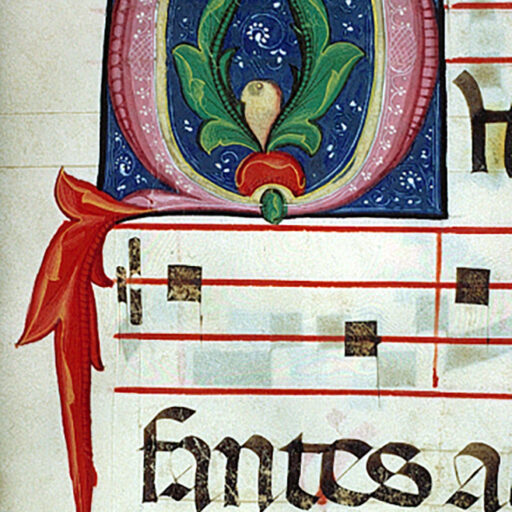 H
fantes a